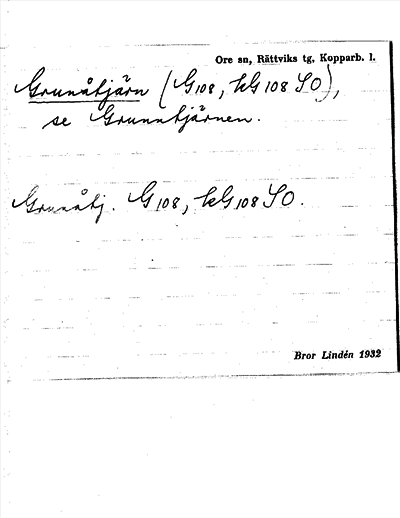 Ore sn, Rättviks tg. Kopparb. l.
Grunåtjärn (G108, kG108 SO),
se Grunntjärnen.
Grunåtj. G108, kG108 SO.
Bror Lindén 1932